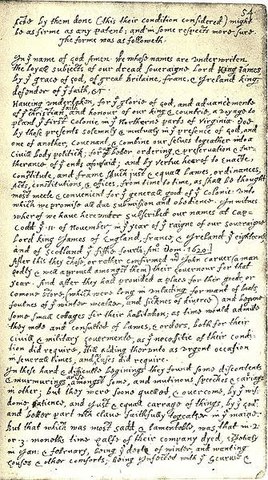 54
acte by them done (this their condition considered) might
be as firme as any patent; and in some respects more sure.
The forme was as followeth.
In yͤ name of god Amen. We whose names are underwriten,
the loyall subjects of our dread soveraigne Lord King James
by yͤ grace of god, of great Britaine, franc, & Ireland king,
defender of yͤ faith, &c
Haveing undertaken, for yͤ glorie of god, and advancemente
of yͤ christian faith and honour of our king & countrie, a voyage to
plant yͤ first colonie in yͤ Northerne parts of Virginia. doe
by these presents solemnly & mutualy in yͤ presence of god, and
one of another, covenant, & combine our selves togeather into a
Civill body politick; for our better ordering, & preservation & fur=
therance of yͤ ends aforesaid; and by vertue hearof to enacte,
constitute, and frame shuch just & equall Lawes, ordinances,
Acts, constitutions, & offices, from time to time, as shall be thought
most meete & convenient for yͤ generall good of yͤ colonie: unto
which we promise all due submission and obedience. In witnes
wherof we have hereunder subscribed our names at cap=
Codd yͤ .11. of November, in yͤ year of yͤ raigne of our soveraigne
Lord king James of England, france, & Ireland yͤ eighteenth
and of Scotland yͤ fiftie fourth. Ano Dom. 1620.
After this they chose, or rather confirmed mr John Carver (a man
godly & well approved amongst them) their Governour for that
year. And after they had provided a place for their goods or
comone store, (which were long in unlading for want of boats,
foulnes of yͤ winter weather, and sicknes of diverce) and begune
some small cottages for their habitation; as time would admitte
they mette and consulted of lawes, & orders, both for their
civill & military Governmente, as yͤ necessitie of their condi=
tion did require, still adding therunto as urgent occasion
in severall times, and cases did require.
In these hard & difficulte begininge they found some discontents
& murmurings amongst some, and mutinous speeches & cariags
in other; but they were soone quelled, & overcome, by yͤ wis=
dome, patience, and just & equall carrage of things, by yͤ Govr
and better part wch clave faithfully togeather in yͤ maine.
But that which was most sadd, & lamentable, was, that in 2.
or 3. moneths time halfe of their company dyed, espetialy
in Jan: & february, being yͤ depth of winter, and wanting
houses & other comforts; being infected with yͤ scurvie &